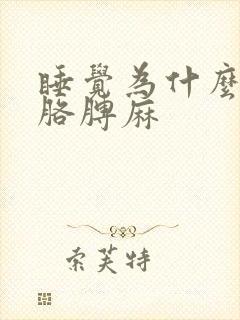 睡覺為什麼
胳脾麻
索芙特